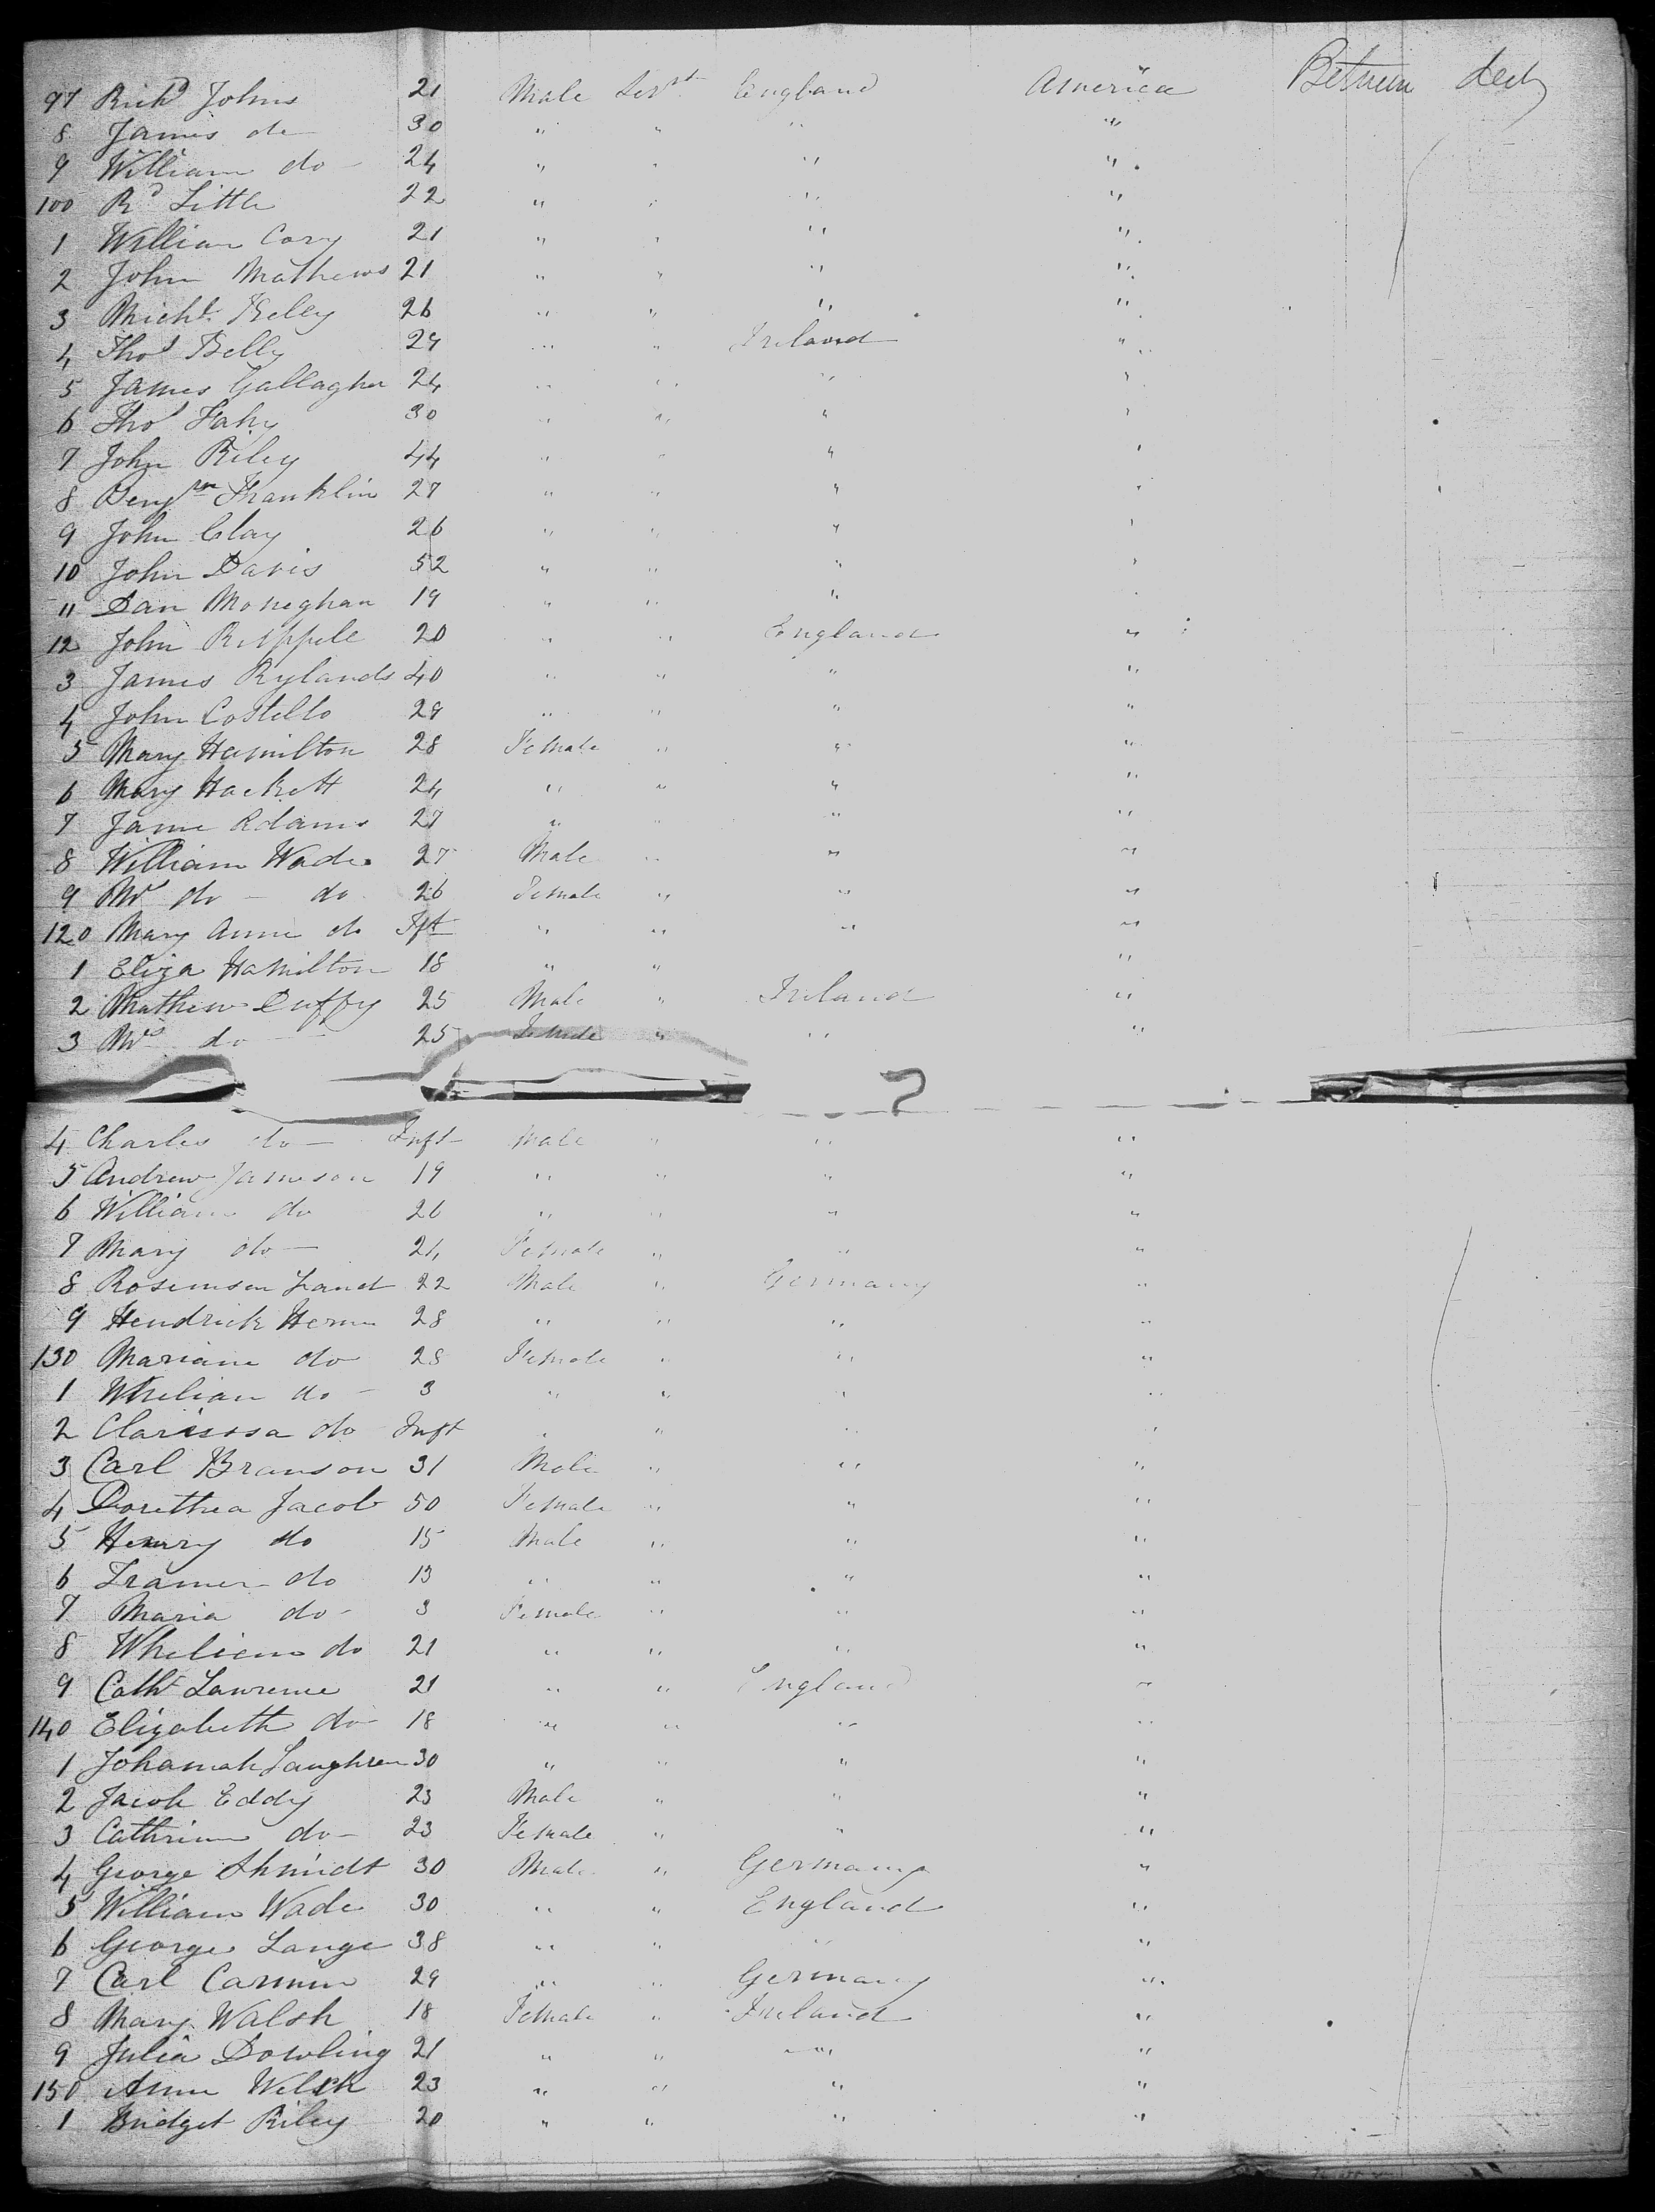 97 Richd Johns 21 Male Servt England America Between deck
8 James do 30 " " " "
9 William do 24 " " " "
100 Rd Little 22 " " " "
1 William Cory 21 " " " "
2 John Mathews 21 " " " "
3 Michl Kelly 26 " " " "
4 Thos Kelly 29 " " Ireland "
5 James Gallagher 24 " " " "
6 Thos Fahy 30 " " " "
7 John Riley 44 " " " "
8 Benjm Franklin 27 " " " "
9 John Clay 26 " " " "
10 John Davis 52 " " " "
11 Dan Moneghan 19 " " " "
12 John 20 " " England "
3 James Rylands 40 " " " "
4 John Costello 29 " " " "
5 Mary Hamilton 28 Female " " "
6 Mary Hackett 24 " " " "
7 Jane Adams 27 " " " "
8 William Wade 27 Male " " "
9 Mrs do do 26 Female " " "
120 Mary Anne do Ift " " " "
1 Eliza Hamilton 18 " " "
2 Mathew Duffy 25 Male " Ireland "
3 Mrs do 25 Female " " "
4 Charles do Inft Male " " "
5 Andrew Jameson 19 " " " "
6 William do 26 " " " "
7 Mary do 24 Female " " "
8 22 Male " Germany "
9 Hendrick Herm 28 " " " "
130 Mariane do 28 Female " " "
1 do 3 " " " "
2 Clarissa do Inft " " " "
3 Carl Branson 31 Male " " "
4 Dorethea Jacob 50 Female " " "
5 Henry do 15 Male " " "
6 do 13 " " " "
7 Maria do 3 Female " " "
8 do 21 " " " "
9 Cathe Lawrence 21 " " England "
140 Elizabeth do 18 " " " "
1 Johannah Laughren 30 " " " "
2 Jacob Eddy 23 Male " " "
3 Cathrine do 23 Female " " "
4 George Shmidt 30 Male " Germany "
5 William Wade 30 " " England "
6 George Lange 38 " " " "
7 Carl 29 " " Germany "
8 Mary Walsh 18 Female " Ireland "
9 Julia Dowling 21 " " " "
150 Anne Welsh 23 " " " "
1 Bridget Riley 20 " " " "